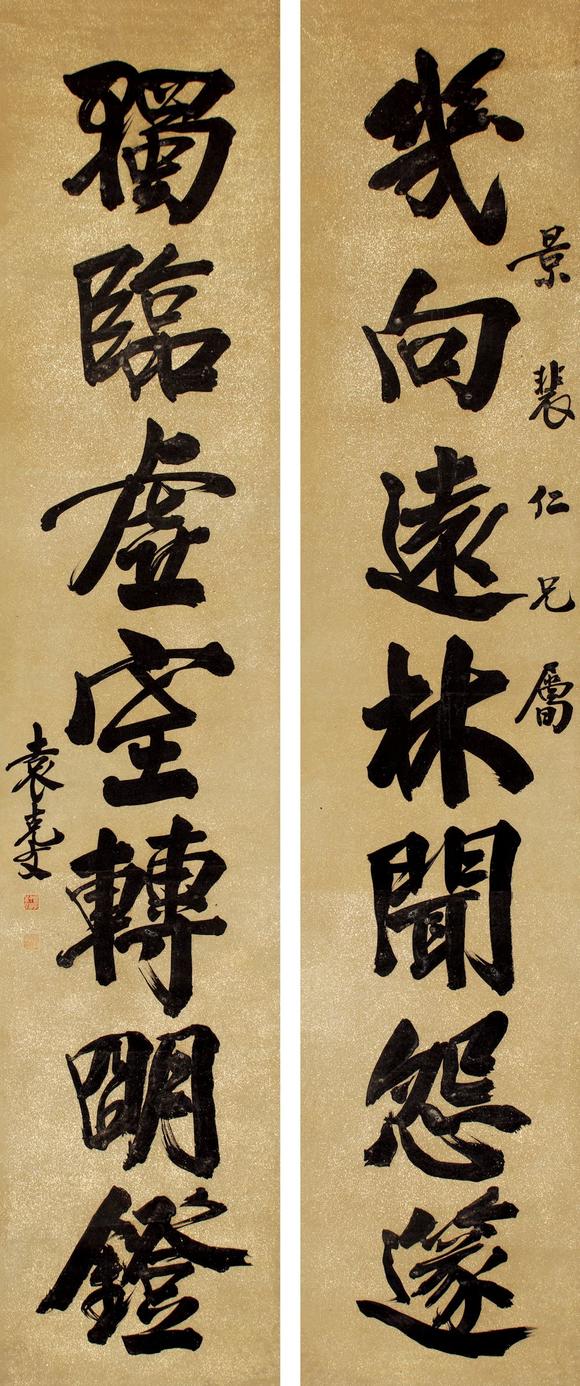 景裴仁兄屬
幾向遠林聞怨篴
獨臨虛室轉明鐙
袁克文